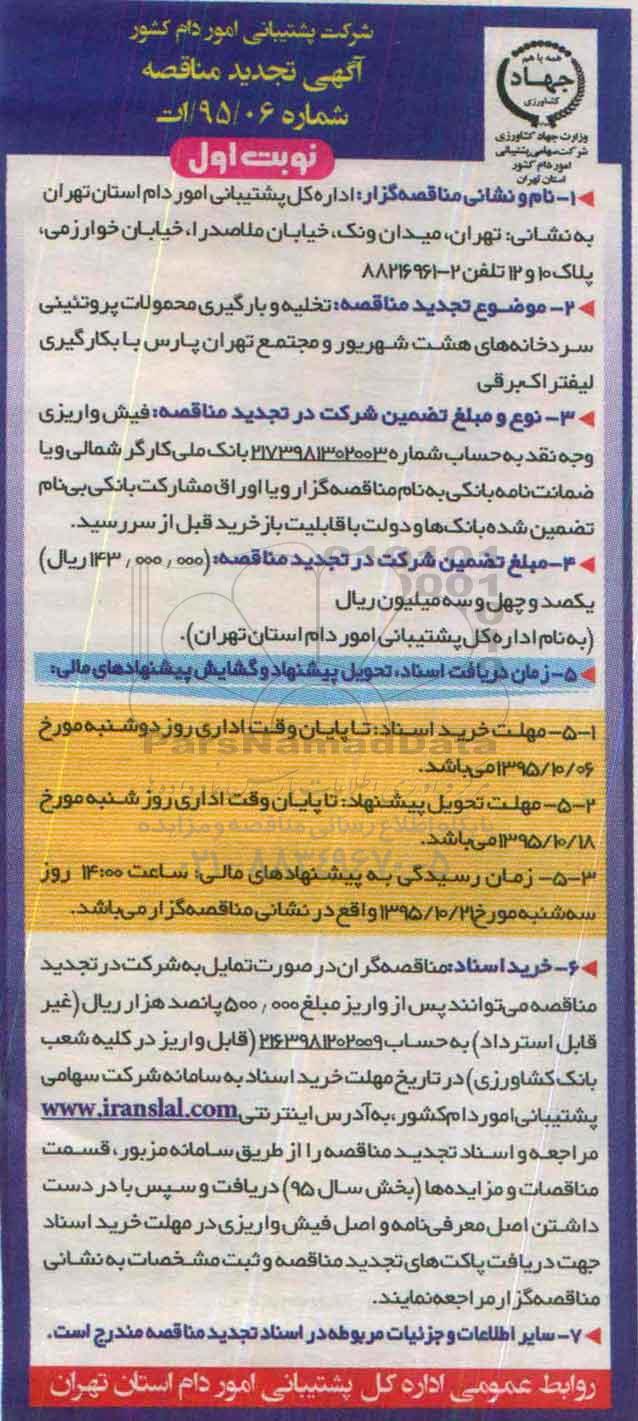 شرکت پشتیبانی امور دام کشور
آگهی تجدید مناقصه
شماره ۹۵/۰۶/ات
نوبت اول
همه با هم
جهاد
کشاورزی
وزارت جهاد کشاورزی
شرکت سهامی پشتیبانی
امور دام کشور
استان تهران
۱- نام و نشانی مناقصه‌گزار: اداره کل پشتیبانی امور دام استان تهران
به نشانی: تهران، میدان ونک، خیابان ملاصدرا، خیابان خوارزمی،
پلاک ۱۰ و ۱۲ تلفن ۲-۸۸۲۱۶۹۶۱
۲- موضوع تجدید مناقصه: تخلیه و بارگیری محمولات پروتئینی
سردخانه‌های هشت شهریور و مجتمع تهران پارس با بکارگیری
لیفتراک برقی
۳- نوع و مبلغ تضمین شرکت در تجدید مناقصه: فیش واریزی
وجه نقد به حساب شماره ۲۱۷۳۹۸۱۳۰۲۰۰۳ بانک ملی کارگر شمالی و یا
ضمانت نامه بانکی به نام مناقصه‌گزار و یا اوراق مشارکت بانکی بی‌نام
تضمین شده بانک‌ها و دولت با قابلیت بازخرید قبل از سررسید.
۴- مبلغ تضمین شرکت در تجدید مناقصه: (۱۴۳٫۰۰۰٫۰۰۰ ریال)
یکصد و چهل و سه میلیون ریال
(به نام اداره کل پشتیبانی امور دام استان تهران).
۵- زمان دریافت اسناد، تحویل پیشنهاد و گشایش پیشنهادهای مالی:
۵-۱- مهلت خرید اسناد: تا پایان وقت اداری روز دوشنبه مورخ
۱۳۹۵/۱۰/۰۶ می‌باشد.
ParsNamadData
۵-۲- مهلت تحویل پیشنهاد: تا پایان وقت اداری روز شنبه مورخ
۱۳۹۵/۱۰/۱۸ می‌باشد.
پایگاه اطلاع رسانی مناقصه و مزایده
۰۲۱-۸۸۳۴۹۶۷۰-۵
۵-۳- زمان رسیدگی به پیشنهادهای مالی؛ ساعت ۱۴:۰۰ روز
سه شنبه مورخ ۱۳۹۵/۱۰/۲۱ واقع در نشانی مناقصه‌گزار می‌باشد.
۶- خرید اسناد: مناقصه‌گران در صورت تمایل به شرکت در تجدید
مناقصه می‌توانند پس از واریز مبلغ ۵۰۰٫۰۰۰ پانصد هزار ریال (غیر
قابل استرداد) به حساب ۲۱۶۳۹۸۱۲۰۲۰۰۹ (قابل واریز در کلیه شعب
بانک کشاورزی) در تاریخ مهلت خرید اسناد به سامانه شرکت سهامی
پشتیبانی امور دام کشور، به آدرس اینترنتی www.iranslal.com
مراجعه و اسناد تجدید مناقصه را از طریق سامانه مزبور، قسمت
مناقصات و مزایده‌ها (بخش سال ۹۵) دریافت و سپس با در دست
داشتن اصل معرفی‌نامه و اصل فیش واریزی در مهلت خرید اسناد
جهت دریافت پاکت‌های تجدید مناقصه و ثبت مشخصات به نشانی
مناقصه‌گزار مراجعه نمایند.
۷- سایر اطلاعات و جزئیات مربوطه در اسناد تجدید مناقصه مندرج است.
روابط عمومی اداره کل پشتیبانی امور دام استان تهران